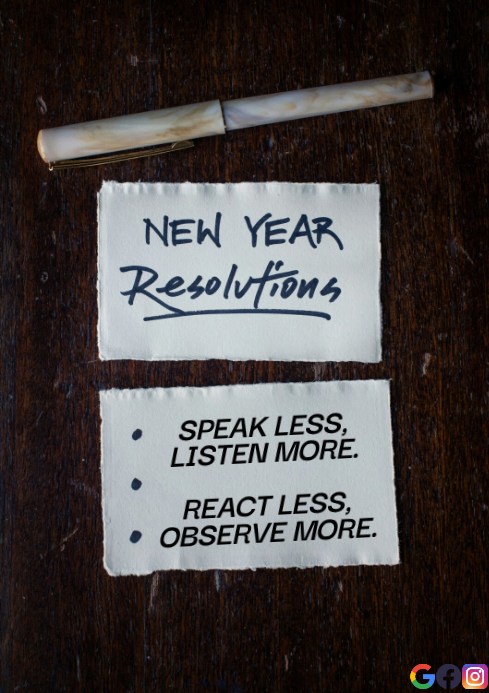 NEW YEAR
Resolutions
SPEAK LESS,
LISTEN MORE.
REACT LESS,
OBSERVE MORE.